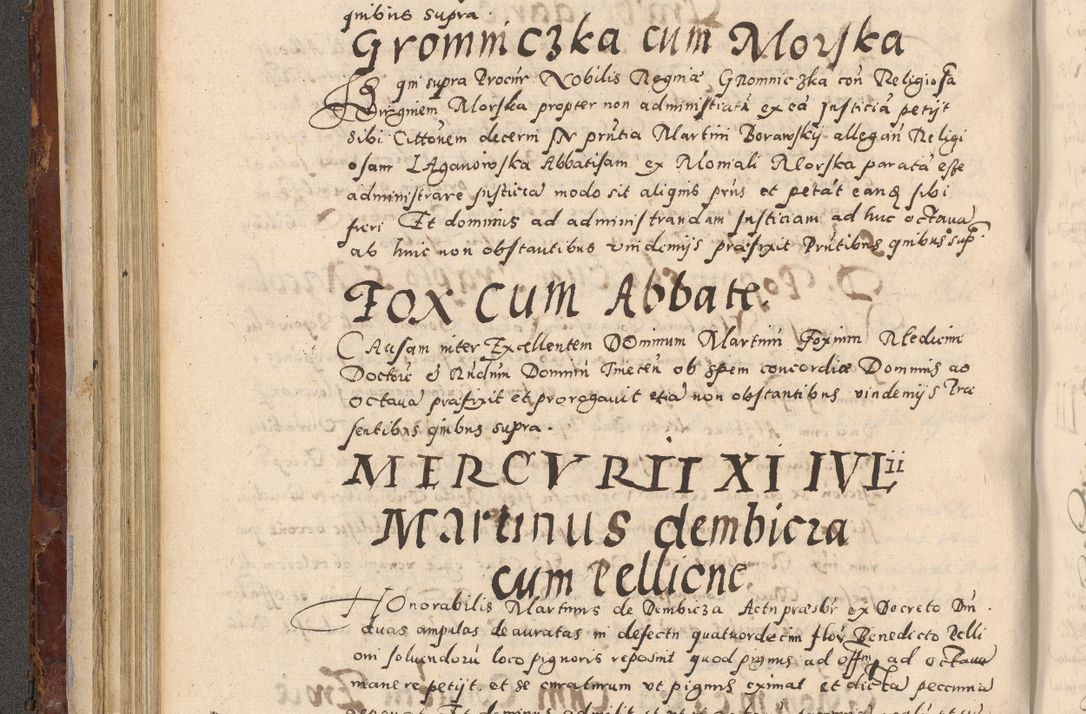 quibus supra.
Gromniczka cum Morska
Is qui supra Procur Nobilis Regina Gromniczka con Religiosa
Virginem Morska propter non administrata ex ea justicia petijt
sibi Cittonem decerni IN prntia Martini Borawsky allegan Religi
osam LAganowska Abbatisam ex Moniali Morska parata esse
administrare justicia modo sit aliquis prius et petat eandq sibi
fieri Et dominus ad administrandam justiciam ad huc octava
ab huic non obstantibus vindemijs præfixit Prntibus quibus sup.
FOX CUM Abbate.
CAusam inter Excellentem DOminum Martinum Foxinm Medicini
Doctore & Rndum Dominum Tineceñ ob spem concordiæ Dominus ao
octava præfixit et prorogavit etia non obstantibus vindemijs Præ
sentibus quibus supra.
MERCVRII XI IVLii
Martinus dembicza
cum Pellione
HOnorabilis Martinus de Dembicza Actu præsbr ex Decreto Dni.
duas ampulas deauratas in defectu quatuordecim flor Benedicto Pelli
oni solvendoru loco pignoris reposuit quod pignus ad off ad octava
manere petijt et se curaturum ut pignus eximat et dicta peccunia